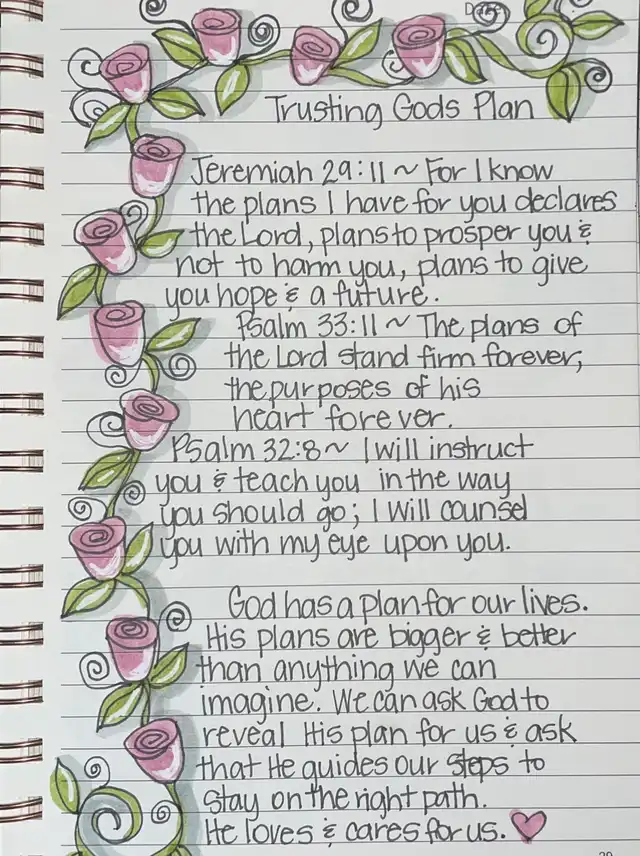 Date
Trusting Gods Plan
Jeremiah 29:11 ~ For I know
the plans I have for you declares
the Lord, plans to prosper you &
not to harm you, plans to give
you hope & a future.
Psalm 33:11 ~ The plans of
the Lord stand firm forever,
the purposes of his
heart forever.
Psalm 32:8 ~ I will instruct
you & teach you in the way
you should go; I will counsel
you with my eye upon you.
God has a plan for our lives.
His plans are bigger & better
than anything we can
imagine. We can ask God to
reveal His plan for us & ask
that He guides our steps to
stay on the right path.
He loves & cares for us.